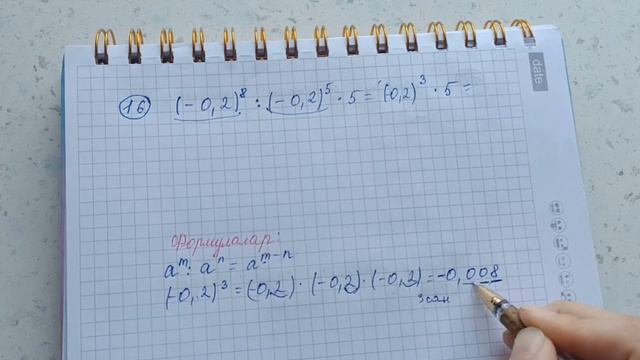 16 (-0,2)⁸ : (-0,2)⁵ · 5 = (0,2)³ · 5 =
date
Формулалар:
aᵐ : aⁿ = aᵐ⁻ⁿ
(-0,2)³ = (-0,2) · (-0,2) · (-0,2) = -0,008
3 сан